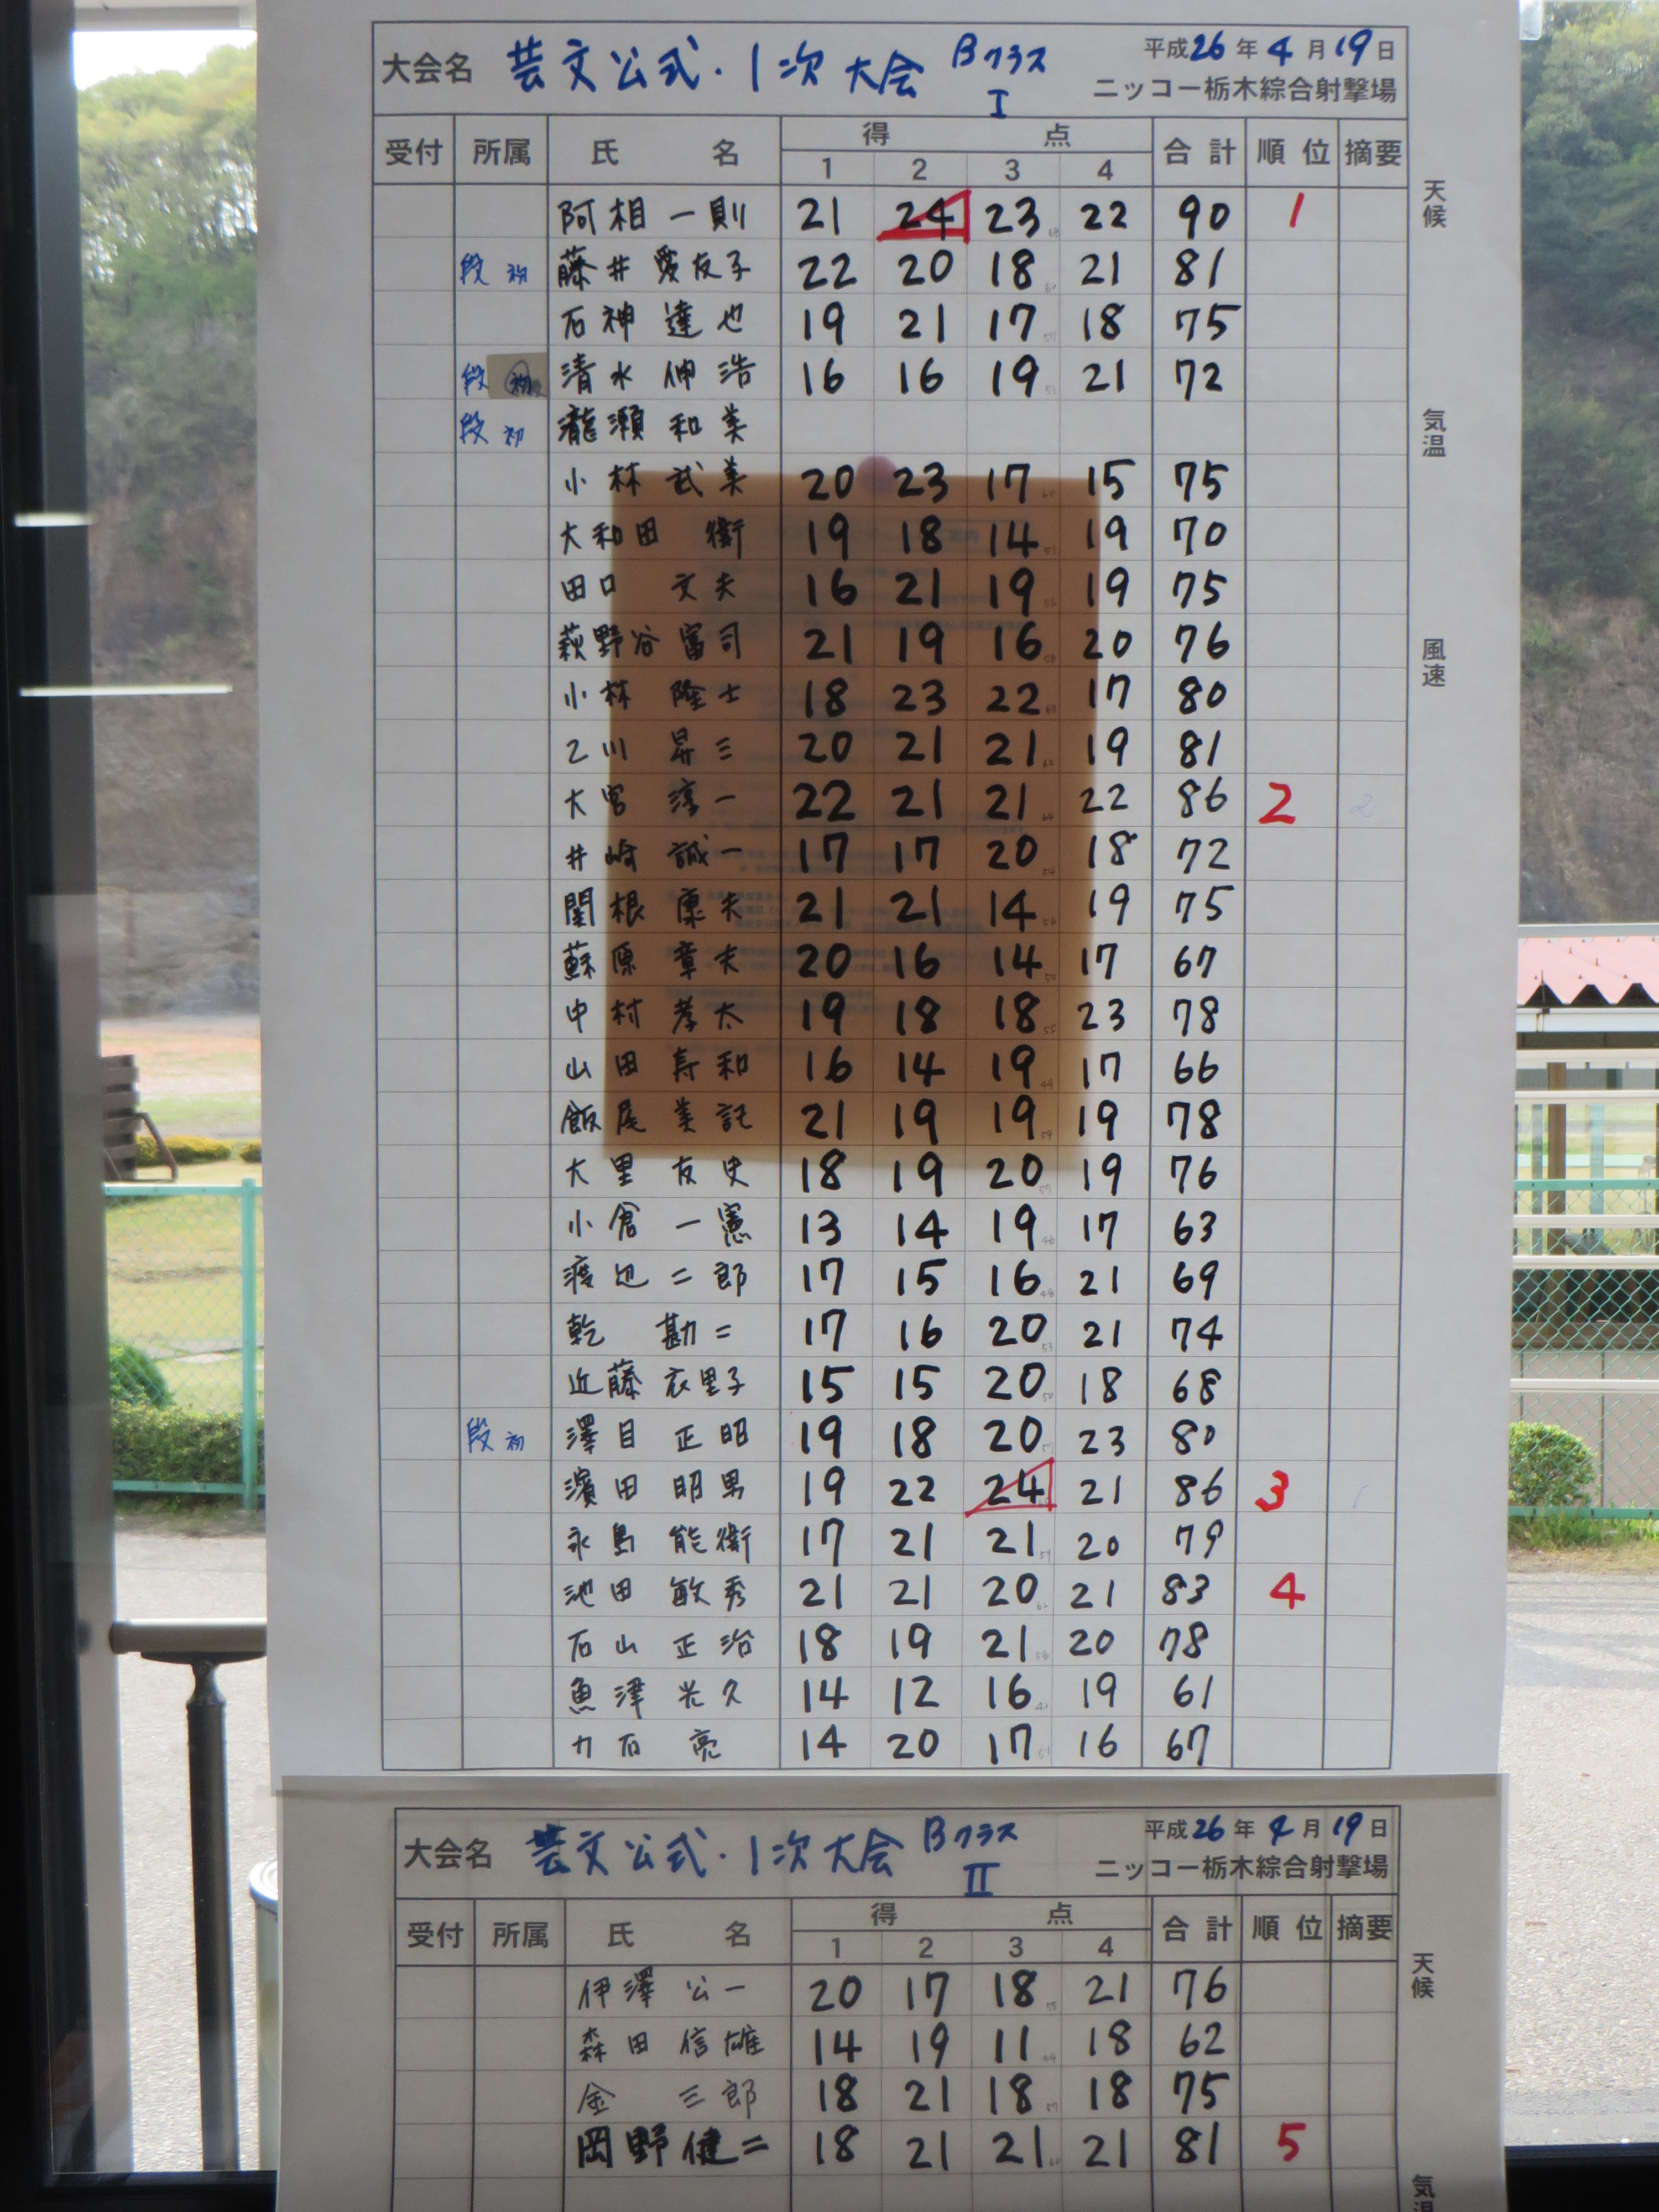 大会名 芸文公式・1次大会 Bクラス I 平成26年4月19日
ニッコー栃木綜合射撃場
受付 所属 氏名 得点 合計 順位 摘要
1 2 3 4
阿相一則 21 24 23 22 90 1
段初 藤井愛友子 22 20 18 21 81
石神達也 19 21 17 18 75
段初 清水伸浩 16 16 19 21 72
段初 瀧瀬和美
小林武美 20 23 17 15 75
大和田衛 19 18 14 19 70
田口文夫 16 21 19 19 75
萩野谷富司 21 19 16 20 76
小林隆士 18 23 22 17 80
乙川昇三 20 21 21 19 81
大宮淳一 22 21 21 22 86 2
井崎誠一 17 17 20 18 72
関根康夫 21 21 14 19 75
蘇原章夫 20 16 14 17 67
中村孝太 19 18 18 23 78
山田寿和 16 14 19 17 66
飯尾美記 21 19 19 19 78
大里友史 18 19 20 19 76
小倉一憲 13 14 19 17 63
渡辺二郎 17 15 16 21 69
乾勘二 17 16 20 21 74
近藤衣里子 15 15 20 18 68
段初 澤目正昭 19 18 20 23 80
濱田昭男 19 22 24 21 86 3
永島能衛 17 21 21 20 79
池田敏秀 21 21 20 21 83 4
石山正治 18 19 21 20 78
魚津光久 14 12 16 19 61
力石亮 14 20 17 16 67
天候
気温
風速
大会名 芸文公式・1次大会 Bクラス II 平成26年4月19日
ニッコー栃木綜合射撃場
受付 所属 氏名 得点 合計 順位 摘要
1 2 3 4
伊澤公一 20 17 18 21 76
森田信雄 14 19 11 18 62
金三郎 18 21 18 18 75
岡野健二 18 21 21 21 81 5
天候
気温